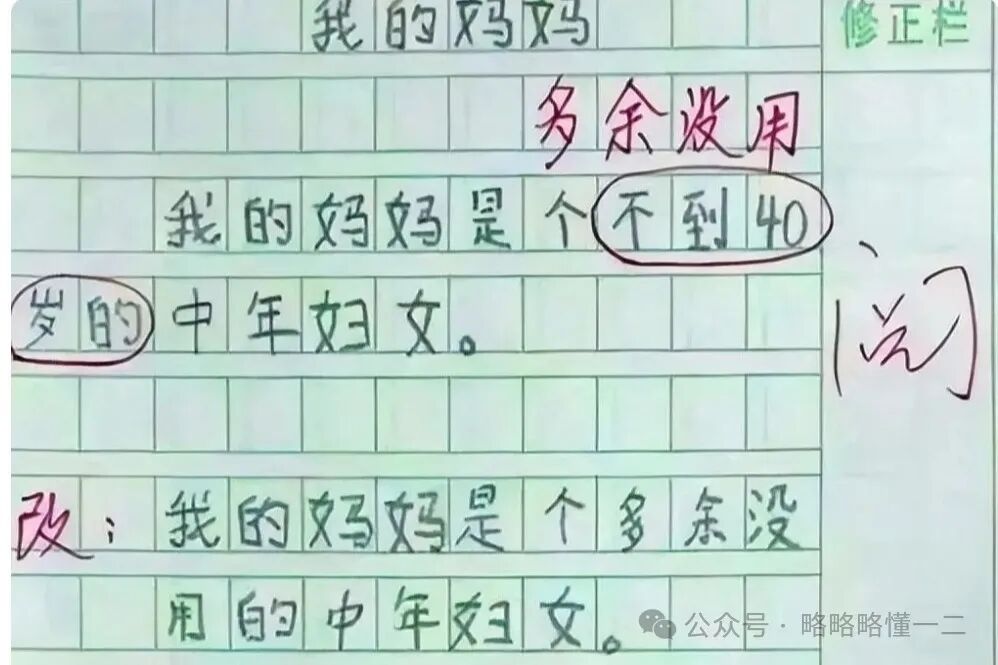 我的妈妈
修正栏
多余没用
我的妈妈是个不到40
岁的中年妇女。
阅
改：我的妈妈是个多余没
用的中年妇女。
公众号·略略略懂一二